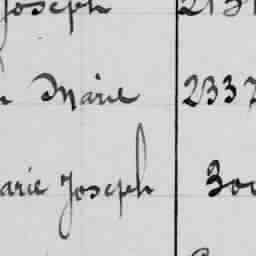 Joseph 2131
Marie 2337
arie Joseph 300